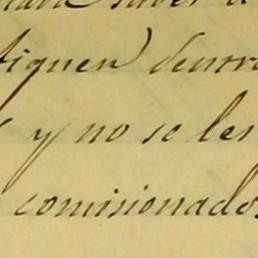 saber
tiquen dentro
y no se les
comisionados